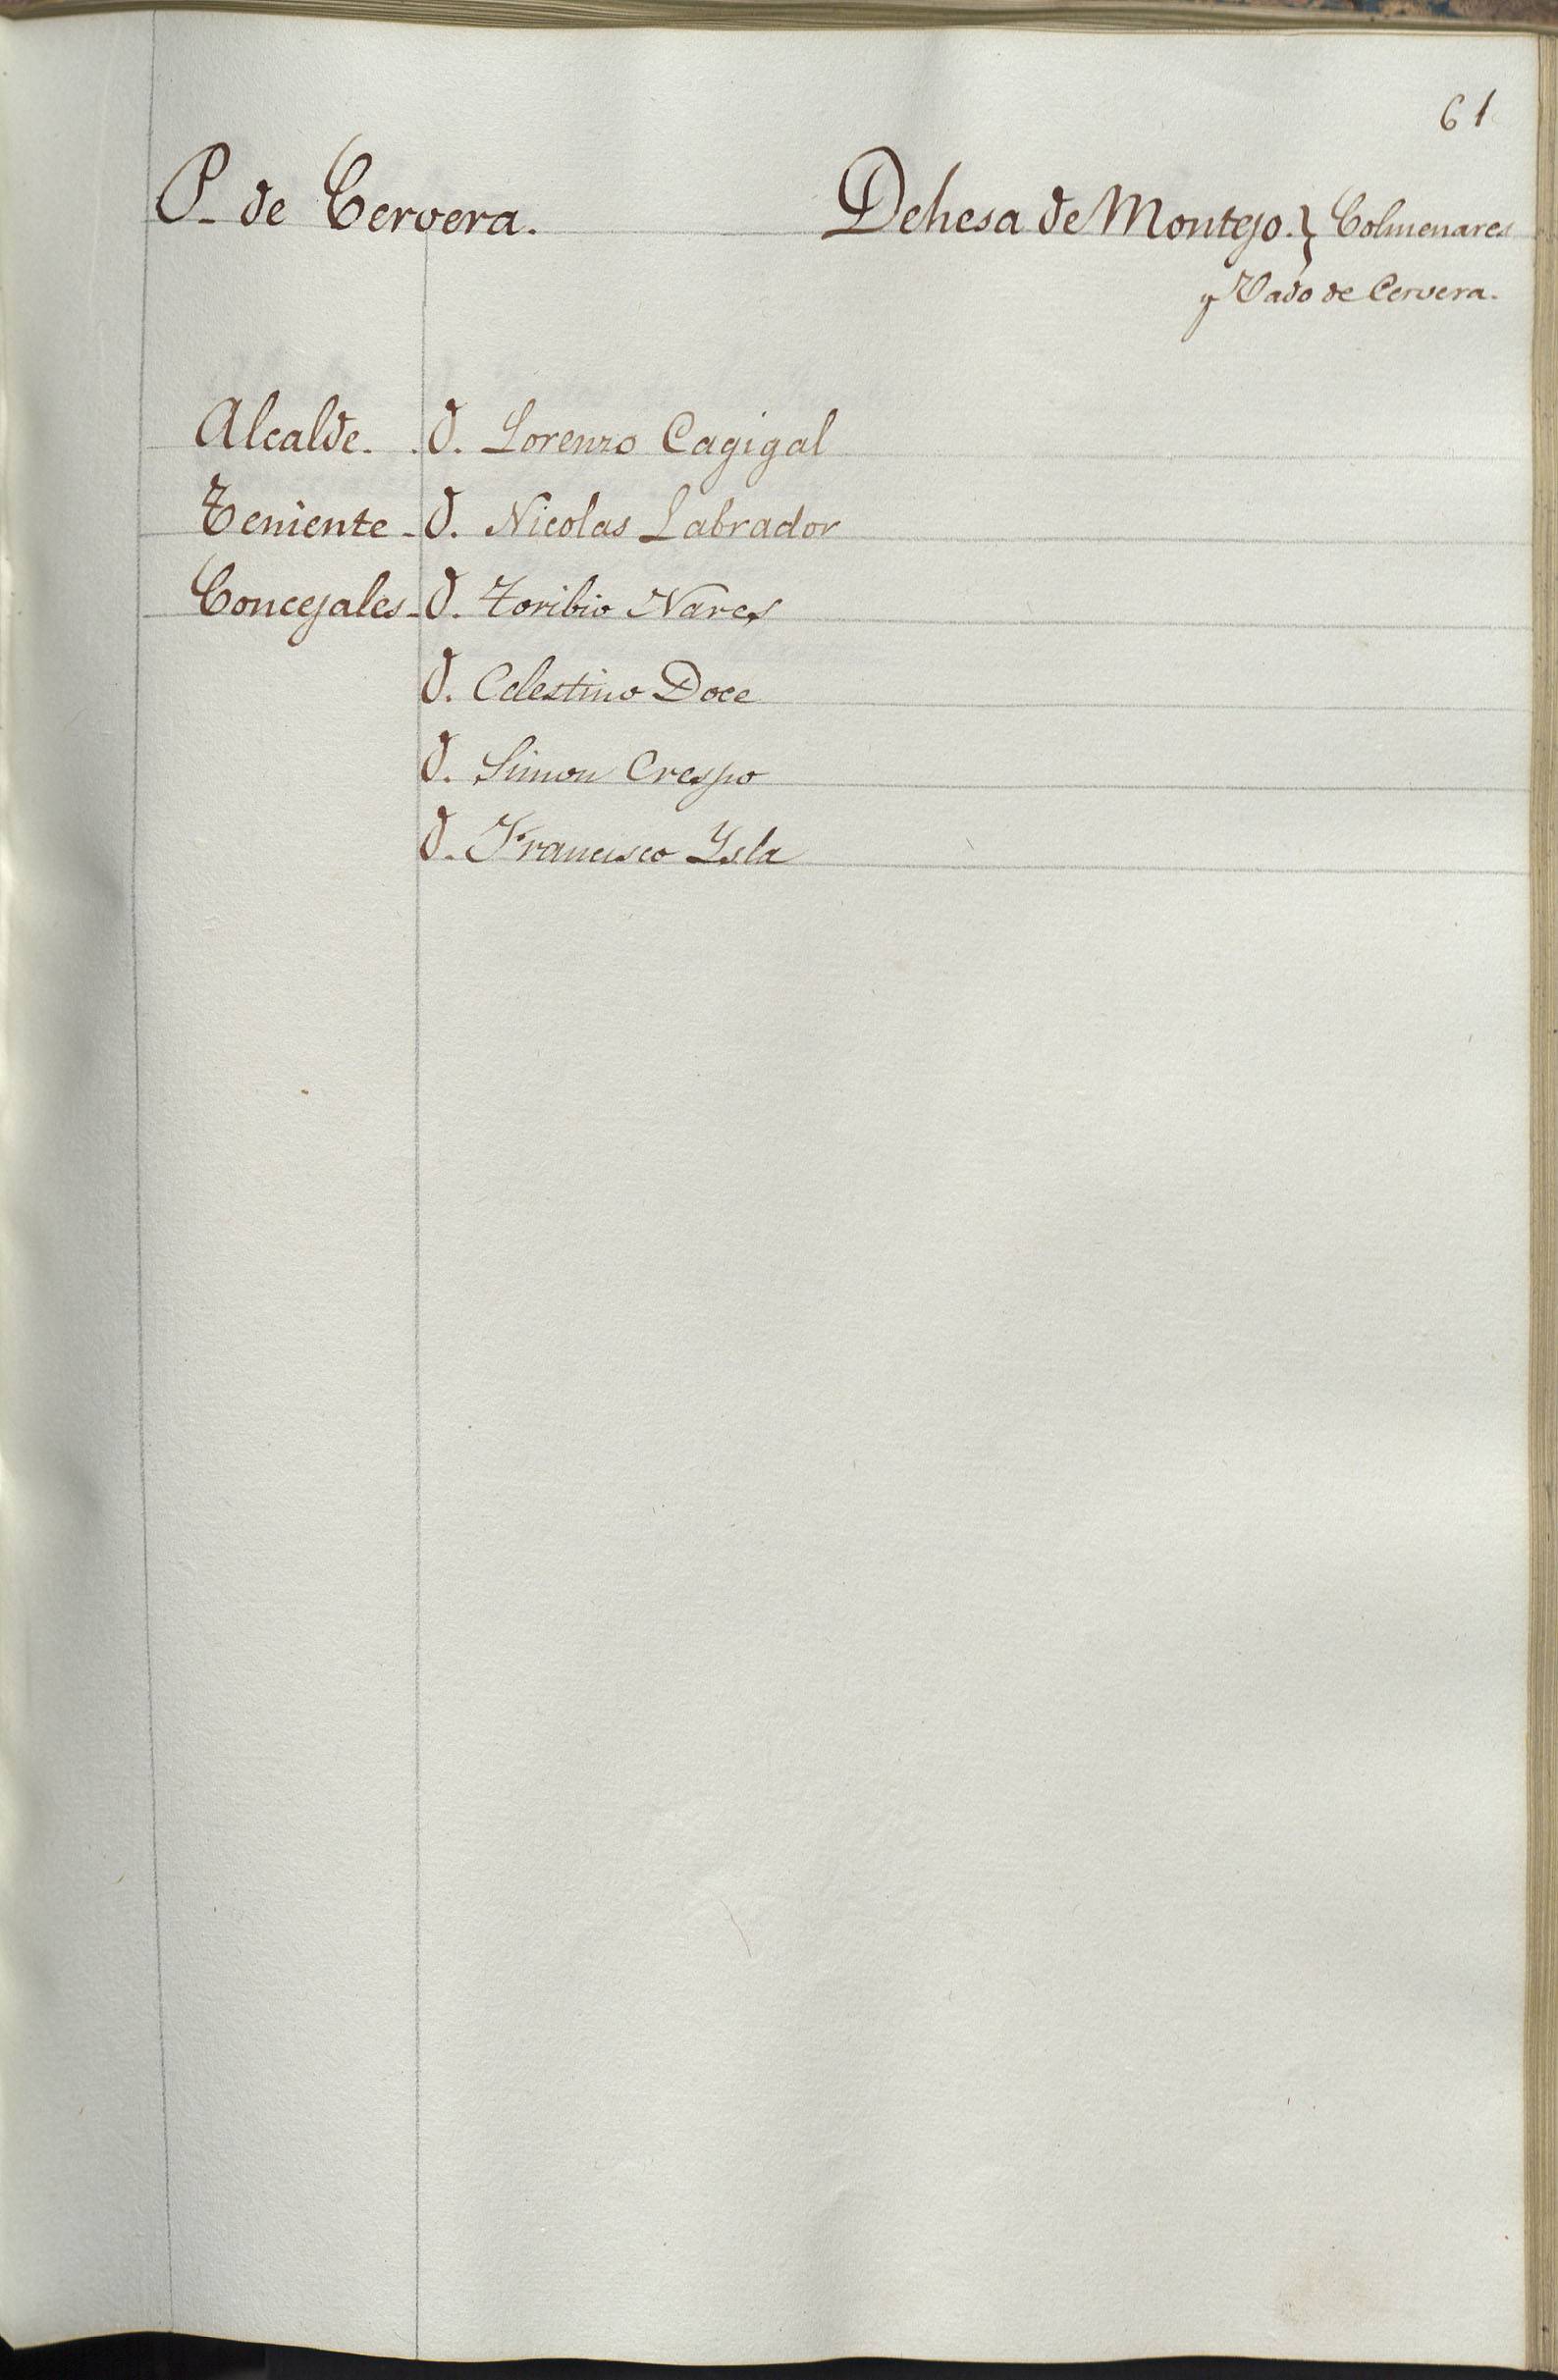 61
P. de Cervera. Dehesa de Montejo. } Colmenares
y Vado de Cervera.
Alcalde. D. Lorenzo Cagigal
Teniente - D. Nicolas Labrador
Concejales - D. Toribio Nares
D. Celestino Doce
D. Simon Crespo
D. Francisco Ysla